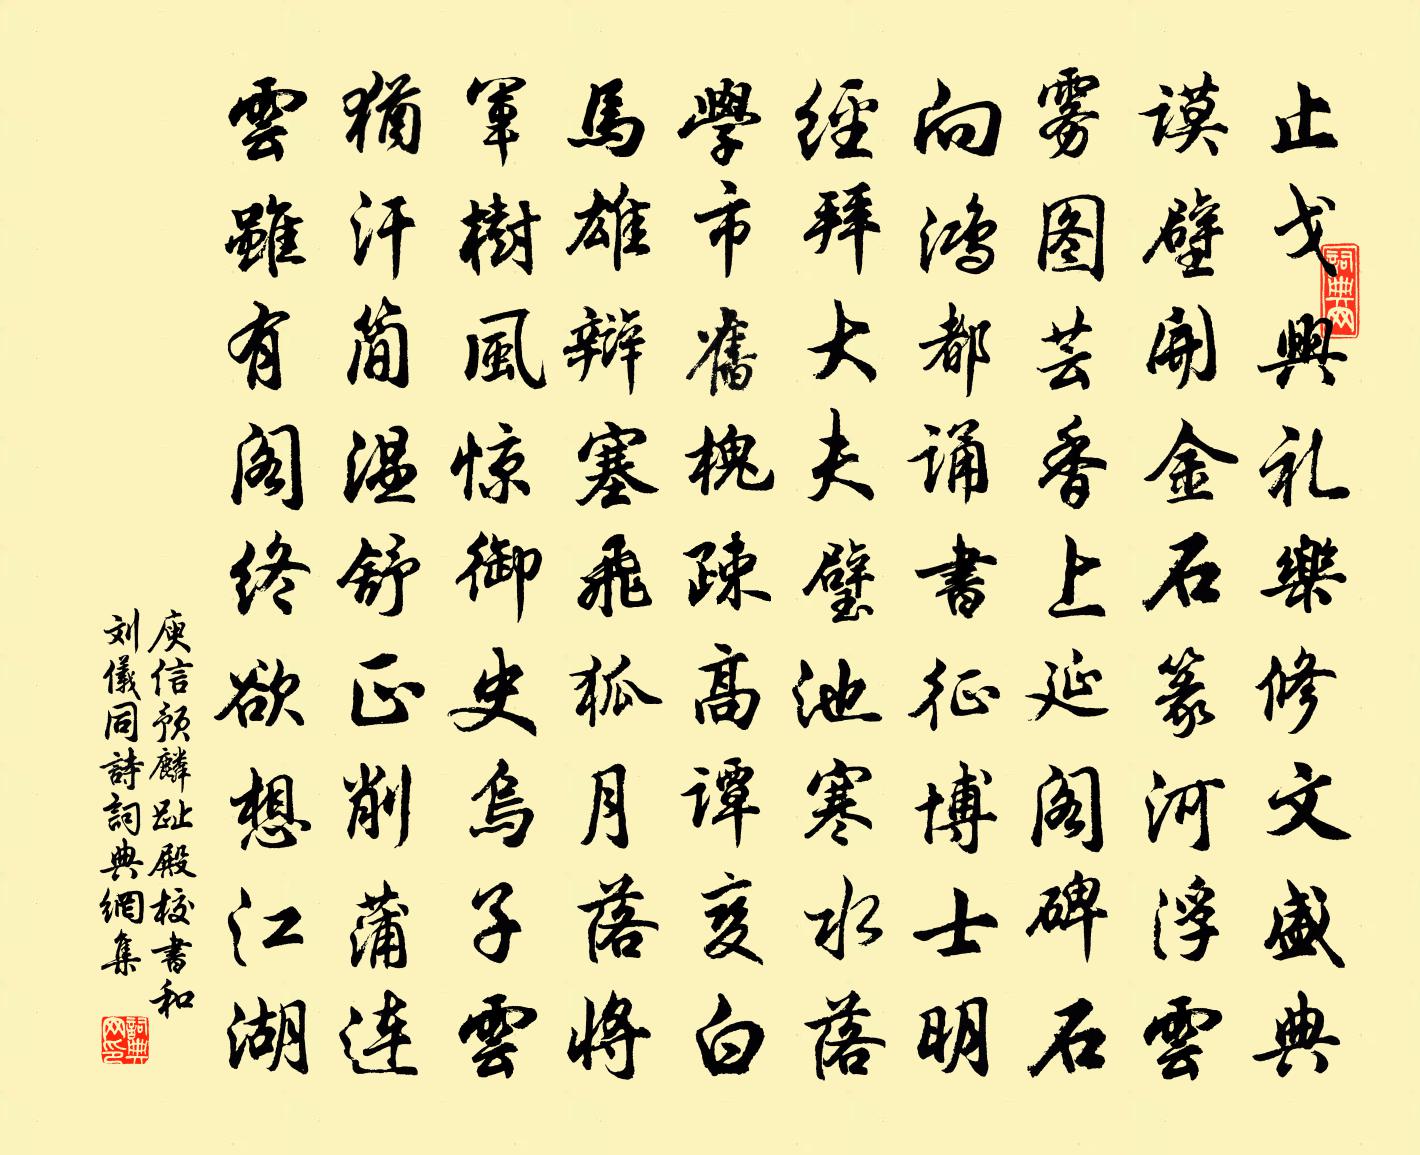 止戈興礼樂修文盛典
謨壁開金石篆河浮雲
雾图芸香上延阁碑石
向鸿都誦書征博士明
經拜大夫璧池寒水落
學市舊槐疎高譚变白
馬雄辯塞飛狐月落将
軍樹風惊御史烏子雲
猶汗简湿舒正削蒲连
雲雖有阁终欲想江湖
庾信预麟趾殿校書和
刘儀同詩詞典網集
詞典网
詞典网印